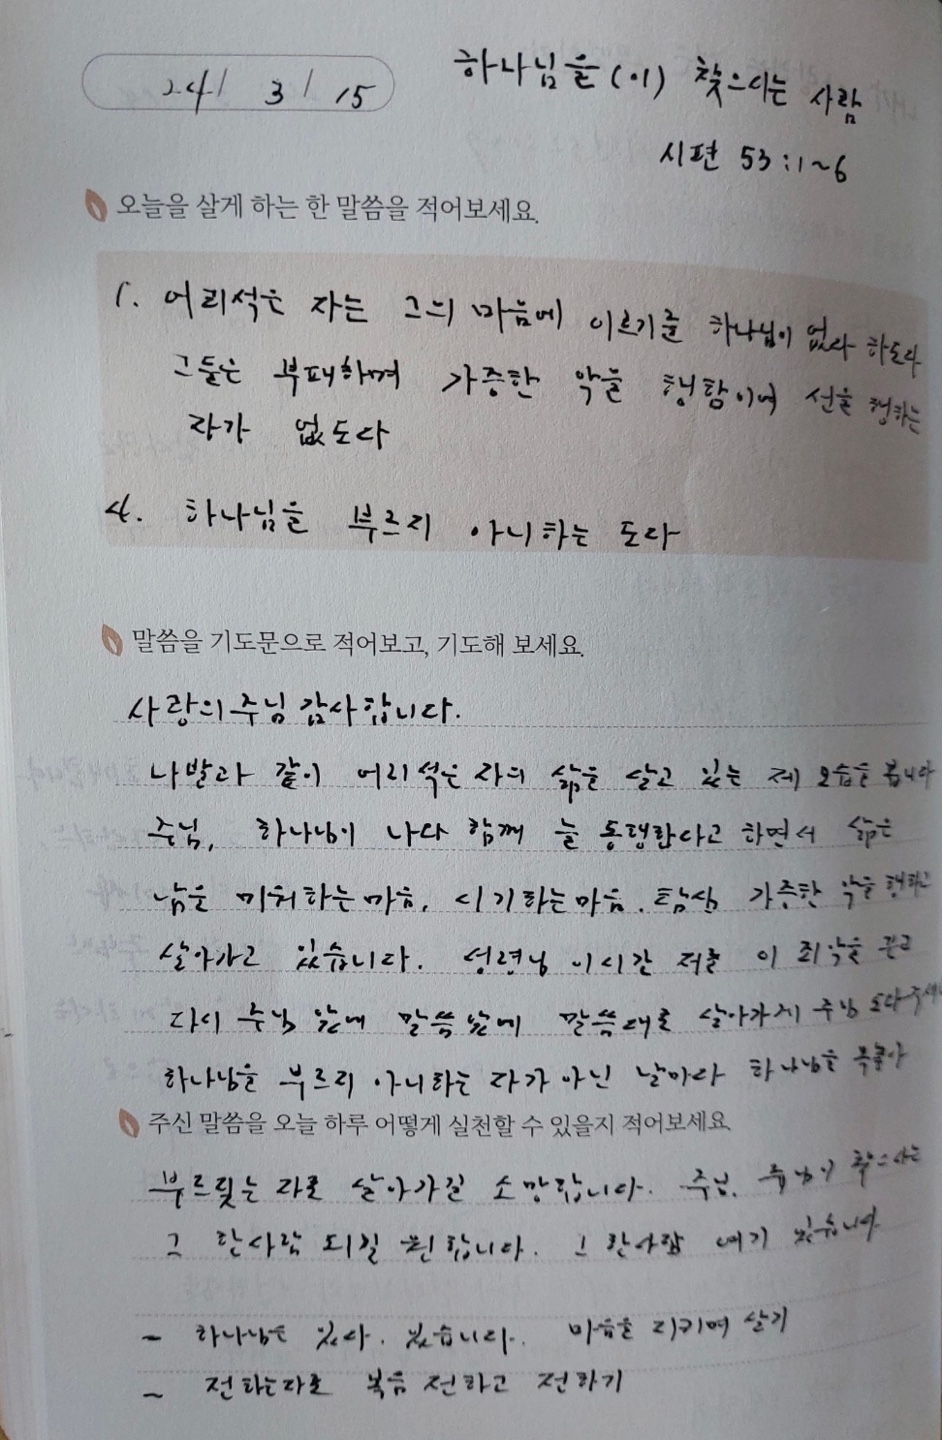 24/ 3/ 15
하나님을(이) 찾으시는 사람
시편 53:1~6
오늘을 살게 하는 한 말씀을 적어보세요.
1. 어리석은 자는 그의 마음에 이르기를 하나님이 없다 하도다
그들은 부패하며 가증한 악을 행함이여 선을 행하는
자가 없도다
4. 하나님을 부르지 아니하는 도다
말씀을 기도문으로 적어보고, 기도해 보세요.
사랑의 주님 감사합니다.
나발과 같이 어리석은 자의 삶을 살고 있는 제 모습을 봅니다
주님, 하나님이 나와 함께 늘 동행한다고 하면서 삶은
남을 미워하는 마음, 시기하는 마음, 탐심 가증한 악을 행하고
살아가고 있습니다. 성령님 이 시간 저를 이 죄악을 끊고
다시 주님 앞에 말씀 앞에 말씀대로 살아가게 주님 도와주세요
하나님을 부르지 아니하는 자가 아닌 날마다 하나님을
주신 말씀을 오늘 하루 어떻게 실천할 수 있을지 적어보세요.
부르짖는 자로 살아가길 소망합니다. 주님, 주님이 찾으시는
그 한사람 되길 원합니다. 그 한사람 여기 있습니다
- 하나님은 있다. 있습니다. 마음을 지키며 살기
- 전하는 자로 복음 전하고 전하기